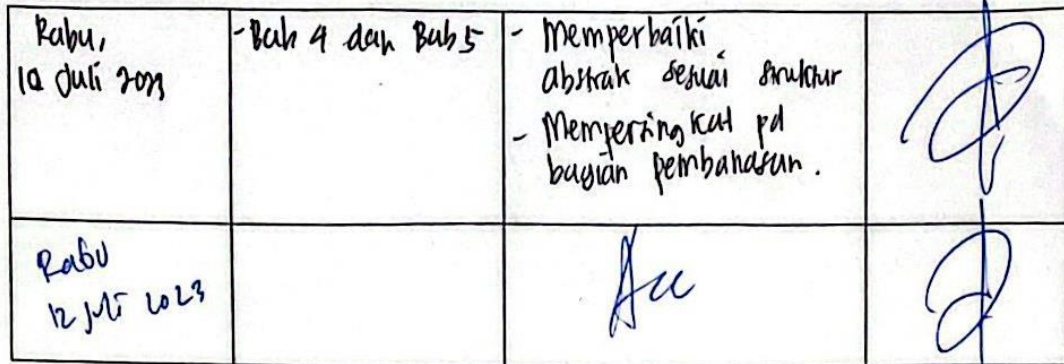 Rabu,
12 Juli 2023
- Bab 4 dan Bab 5
- Memperbaiki
abstrak sesuai struktur
- Mempersingkat pd
bagian pembahasan.
Rabu
12 Juli 2023
Acc